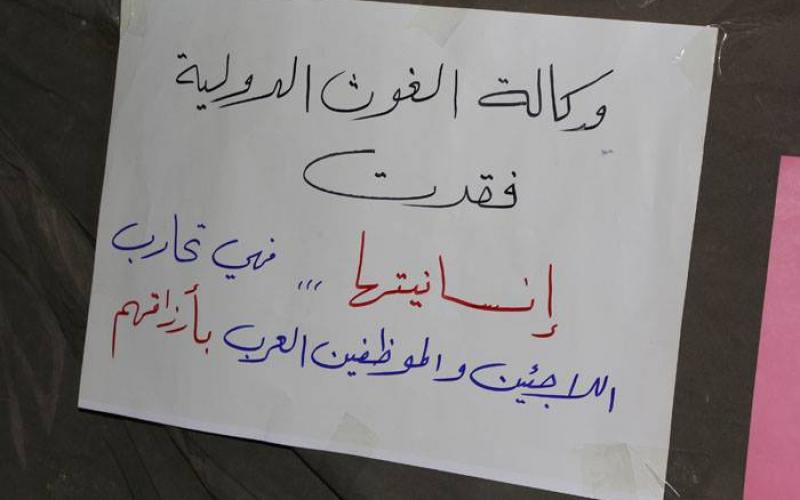 وكالة الغوث الدولية
فقدت
إنسانيتها ,,, فهي تحارب
اللاجئين والموظفين العرب بأرزاقهم